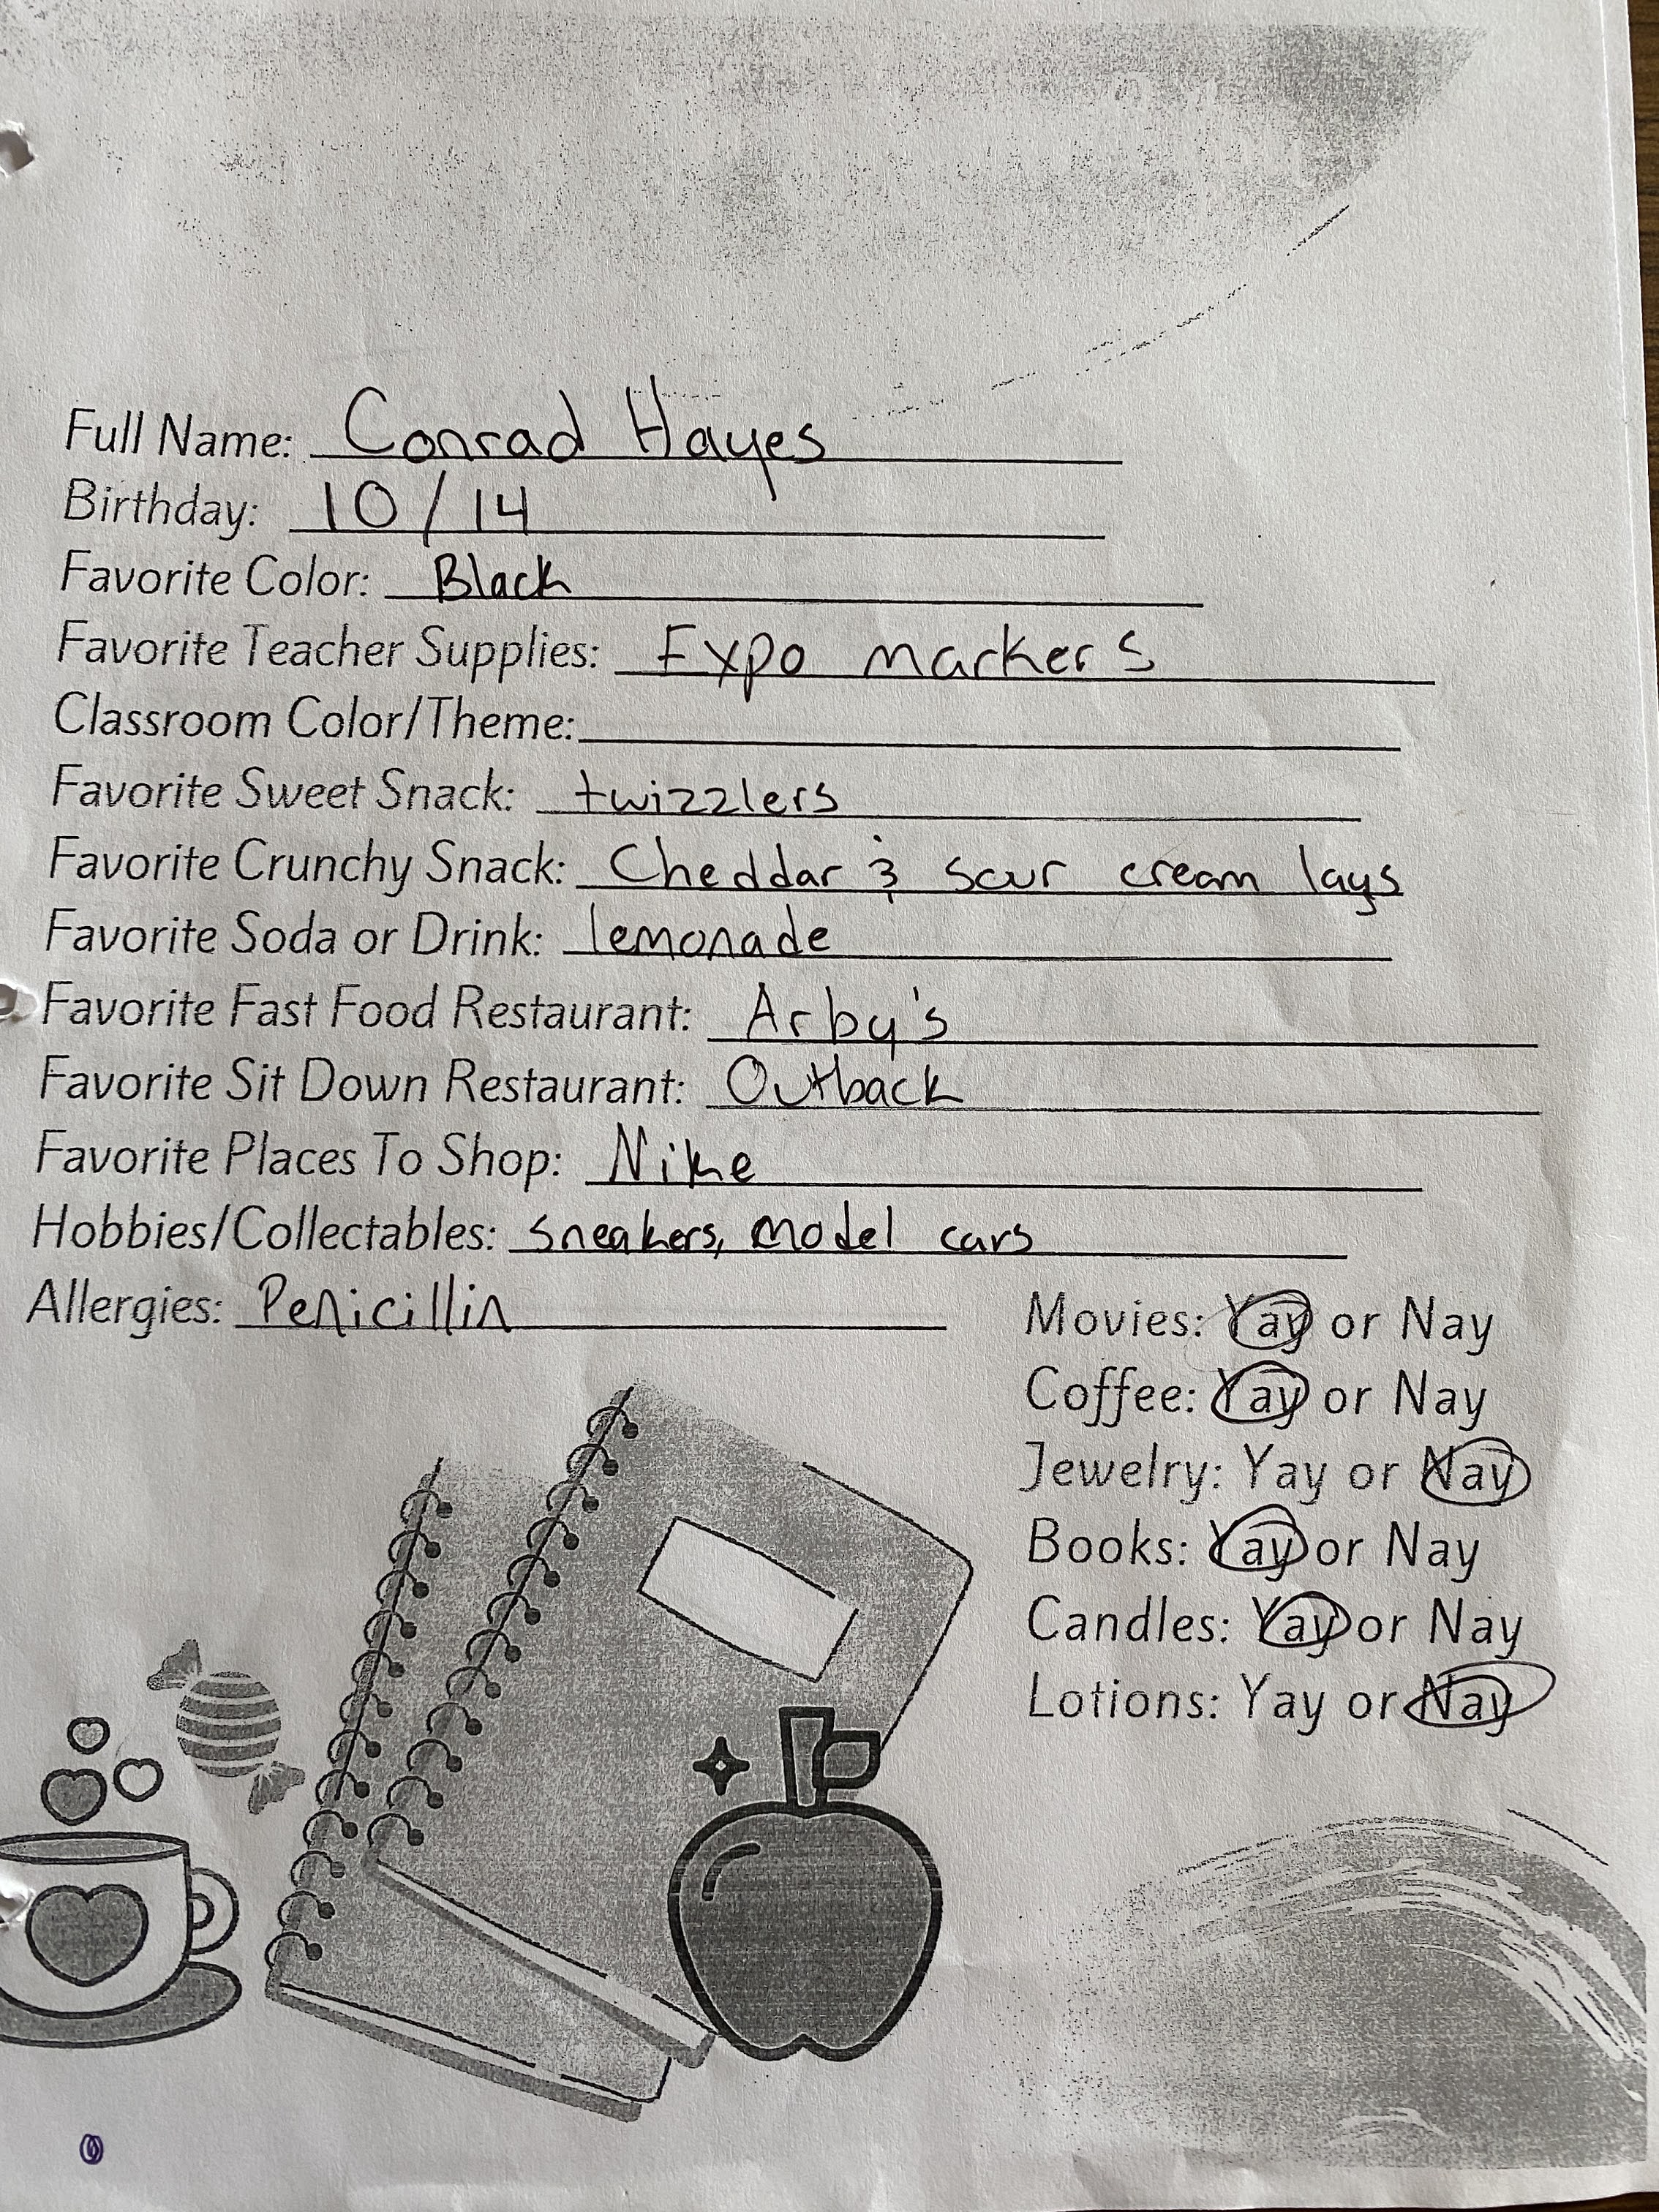 Full Name: Conrad Hayes
Birthday: 10/14
Favorite Color: Black
Favorite Teacher Supplies: Expo markers
Classroom Color/Theme:
Favorite Sweet Snack: twizzlers
Favorite Crunchy Snack: Cheddar & sour cream lays
Favorite Soda or Drink: lemonade
Favorite Fast Food Restaurant: Arby's
Favorite Sit Down Restaurant: Outback
Favorite Places To Shop: Nike
Hobbies/Collectables: sneakers, model cars
Allergies: Penicillin
Movies: Yay or Nay
Coffee: Yay or Nay
Jewelry: Yay or Nay
Books: Yay or Nay
Candles: Yay or Nay
Lotions: Yay or Nay